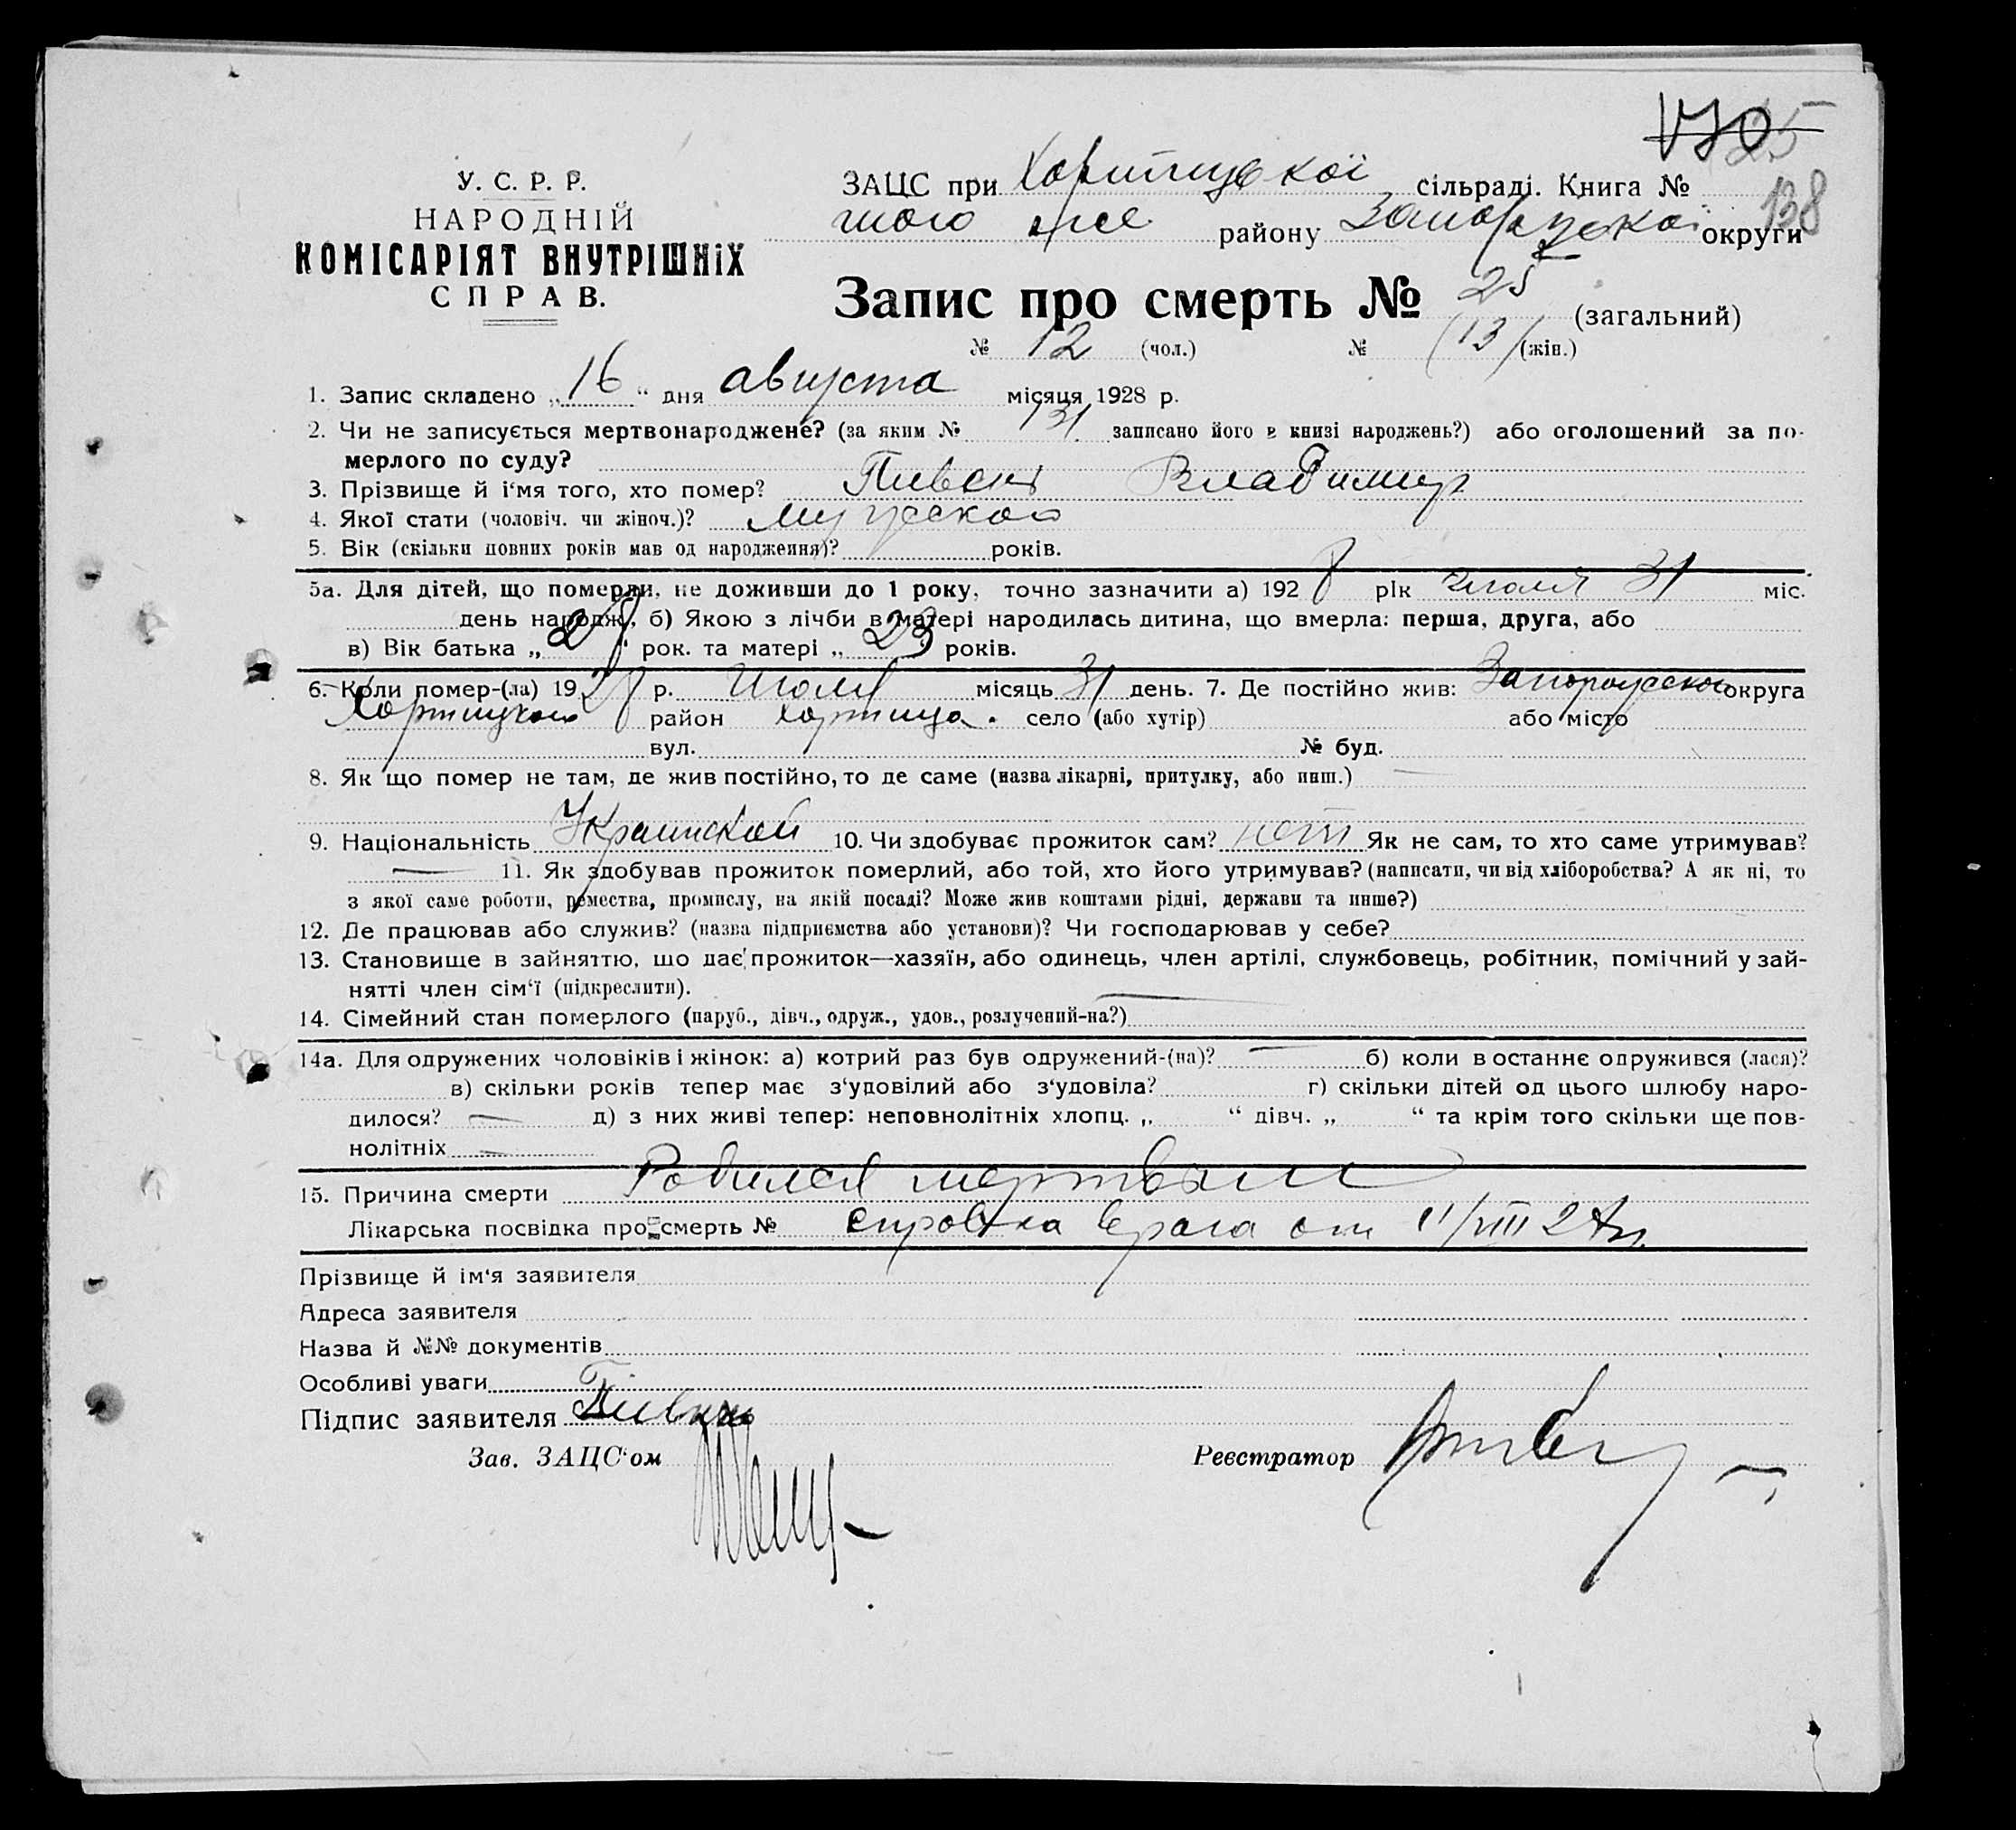 138
У. С. Р. Р.
НАРОДНІЙ
КОМІСАРІЯТ ВНУТРІШНІХ
СПРАВ.
ЗАЦС при Хортицькоі сільраді. Книга №
того же району округи
Запис про смерть № 25 (загальний)
№ 12 (чол.) № (13) (жін.)
1. Запис складено „16“ дня августа місяця 1928 р.
2. Чи не записується мертвонароджене? (за яким № 131 записано його в книзі народжень?) або оголошений за по-
мерлого по суду?
3. Прізвище й і‘мя того, хто помер? Владимир
4. Якої стати (чоловіч. чи жіноч.)? мужской
5. Вік (скільки повних років мав од народження)? років.
5а. Для дітей, що померли, не доживши до 1 року, точно зазначити а) 1928 рік июля 31 міс.
день народж., б) Якою з лічби в матері народилась дитина, що вмерла: перша, друга, або
в) Вік батька „28“ рок. та матері „23“ років.
6. Коли помер-(ла) 1928 р. Июля місяць 31 день. 7. Де постійно жив: Запорожской округа
Хортицкого район Хортица. село (або хутір) або місто
вул. № буд.
8. Як що помер не там, де жив постійно, то де саме (назва лікарні, притулку, або инш.) —
9. Національність Украинской 10. Чи здобуває прожиток сам? нет Як не сам, то хто саме утримував?
— 11. Як здобував прожиток померлий, або той, хто його утримував? (написати, чи від хліборобства? А як ні, то
з якої саме роботи, ремества, промислу, на якій посаді? Може жив коштами рідні, держави та инше?)
12. Де працював або служив? (назва підприємства або установи)? Чи господарював у себе?
13. Становище в зайняттю, що дає прожиток—хазяїн, або одинець, член артілі, службовець, робітник, помічний у зай-
нятті член сім‘ї (підкреслити).
14. Сімейний стан померлого (паруб., дівч., одруж., удов., розлучений-на?) —
14а. Для одружених чоловіків і жінок: а) котрий раз був одружений-(на)? — б) коли востаннє одружився (лася)?
в) скільки років тепер має з‘удовілий або з‘удовіла? г) скільки дітей од цього шлюбу наро-
дилося? — д) з них живі тепер: неповнолітніх хлопц. „ “ дівч. „ “ та крім того скільки ще пов-
нолітніх —
15. Причина смерти Родился мертвым
Лікарська посвідка про смерть № справка врача от 11/VIII
Прізвище й ім‘я заявителя
Адреса заявителя
Назва й №№ документів
Особливі уваги
Підпис заявителя
Зав. ЗАЦС‘ом Реєстратор